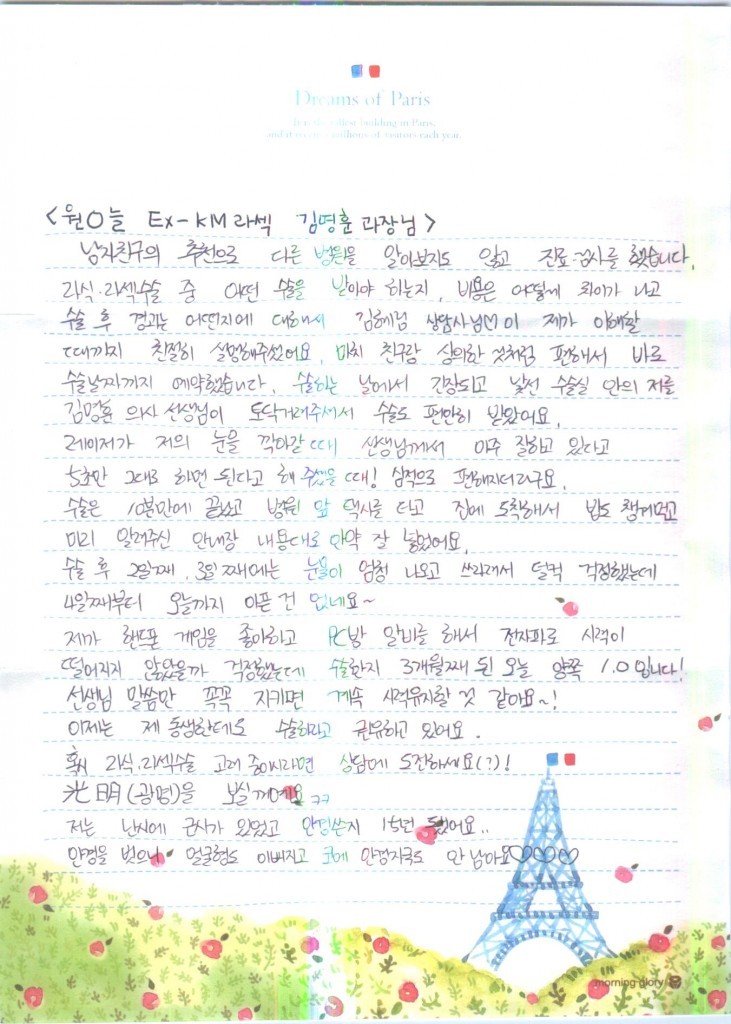 Dreams of Paris
It is the tallest building in Paris,
and it receives millions of visitors each year.
<원O늘 Ex-KM 라섹 김명훈 과장님>
남자친구의 추천으로 다른 병원을 알아보지도 않고 진료·검사를 했습니다.
라식·라섹수술 중 어떤 수술을 받아야 하는지, 비용은 어떻게 차이가 나고
수술 후 경과는 어떤지에 대해서 김혜림 상담사님♡이 제가 이해할
때까지 친절히 설명해주셨어요. 마치 친구랑 상의한 것처럼 편해서 바로
수술날짜까지 예약했습니다. 수술하는 날에서 긴장되고 낯선 수술실 안의 저를
김명훈 의사 선생님이 토닥거려주셔서 수술도 편안히 받았어요.
레이저가 저의 눈을 깍아갈 때 선생님께서 아주 잘하고 있다고
5초만 그대로 하면 된다고 해 주셨을 때! 심적으로 편해지더라구요.
수술은 10분만에 끝났고 병원 앞 택시를 타고 집에 도착해서 밥도 챙겨먹고
미리 알려주신 안내장 내용대로 안약 잘 넣었어요.
수술 후 2일째, 3일째에는 눈물이 엄청 나오고 쓰라려서 덜컥 걱정했는데
4일째부터 오늘까지 아픈 건 없네요~
제가 핸드폰 게임을 좋아하고 PC방 알바를 해서 전자파로 시력이
떨어지지 않았을까 걱정했는데 수술한지 3개월째 된 오늘 양쪽 1.0입니다!
선생님 말씀만 꼭꼭 지키면 계속 시력유지할 것 같아요~!
이제는 제 동생한테도 수술하라고 권유하고 있어요.
혹시 라식.라섹수술 고려 중이시라면 상담에 도전하세요(?)!
光明(광명)을 보실꺼예요 ㅋㅋ
저는 난시에 근시가 있었고 안경쓴지 15년 됐었어요..
안경을 벗으니 얼굴형도 이뻐지고 코에 안경자국도 안 남아요♡♡♡
morning glory